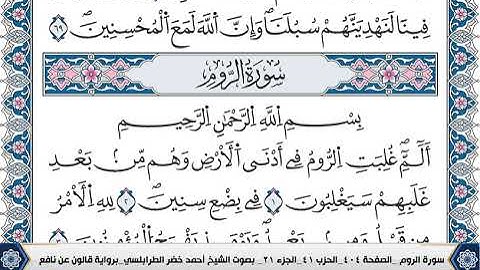 فِينَا لَنَهْدِيَنَّهُمْ سُبُلَنَا وَإِنَّ اَللَّهَ لَمَعَ اَلْمُحْسِنِينَ ٦٩
سُورَةُ الرُّومِ
بِسْمِ اِللَّهِ اِلرَّحْمَٰنِ اِلرَّحِيمِ
أَلَٓمِّٓ غُلِبَتِ اِلرُّومُ فِے أَدْنَى اَلْأَرْضِ وَهُم مِّنۢ بَعْدِ
غَلَبِهِمْ سَيَغْلِبُونَ ١ فِے بِضْعِ سِنِينَ ٢ لِلهِ اِلْأَمْرُ
مِن قَبْلُ وَمِنۢ بَعْدُ وَيَوْمَئِذٍ يَفْرَحُ اُلْمُؤْمِنُونَ ٣
سورة الروم _الصفحة ٤٠٤_الحزب ٤١_الجزء ٢١_ بصوت الشيخ أحمد خضر الطرابلسي_برواية قالون عن نافع